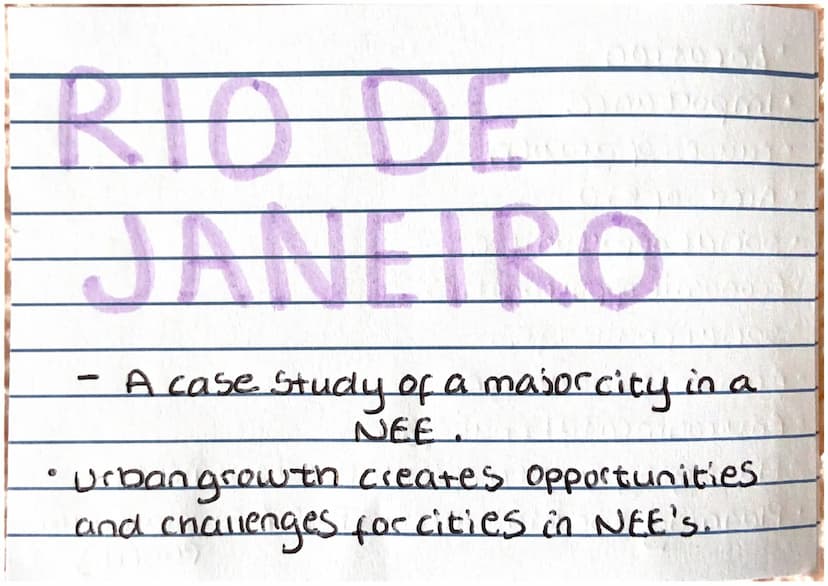 RIO DE
JANEIRO
- A case study of a major city in a
NEE.
• Urban growth creates opportunities
and challenges for cities in NEE's.